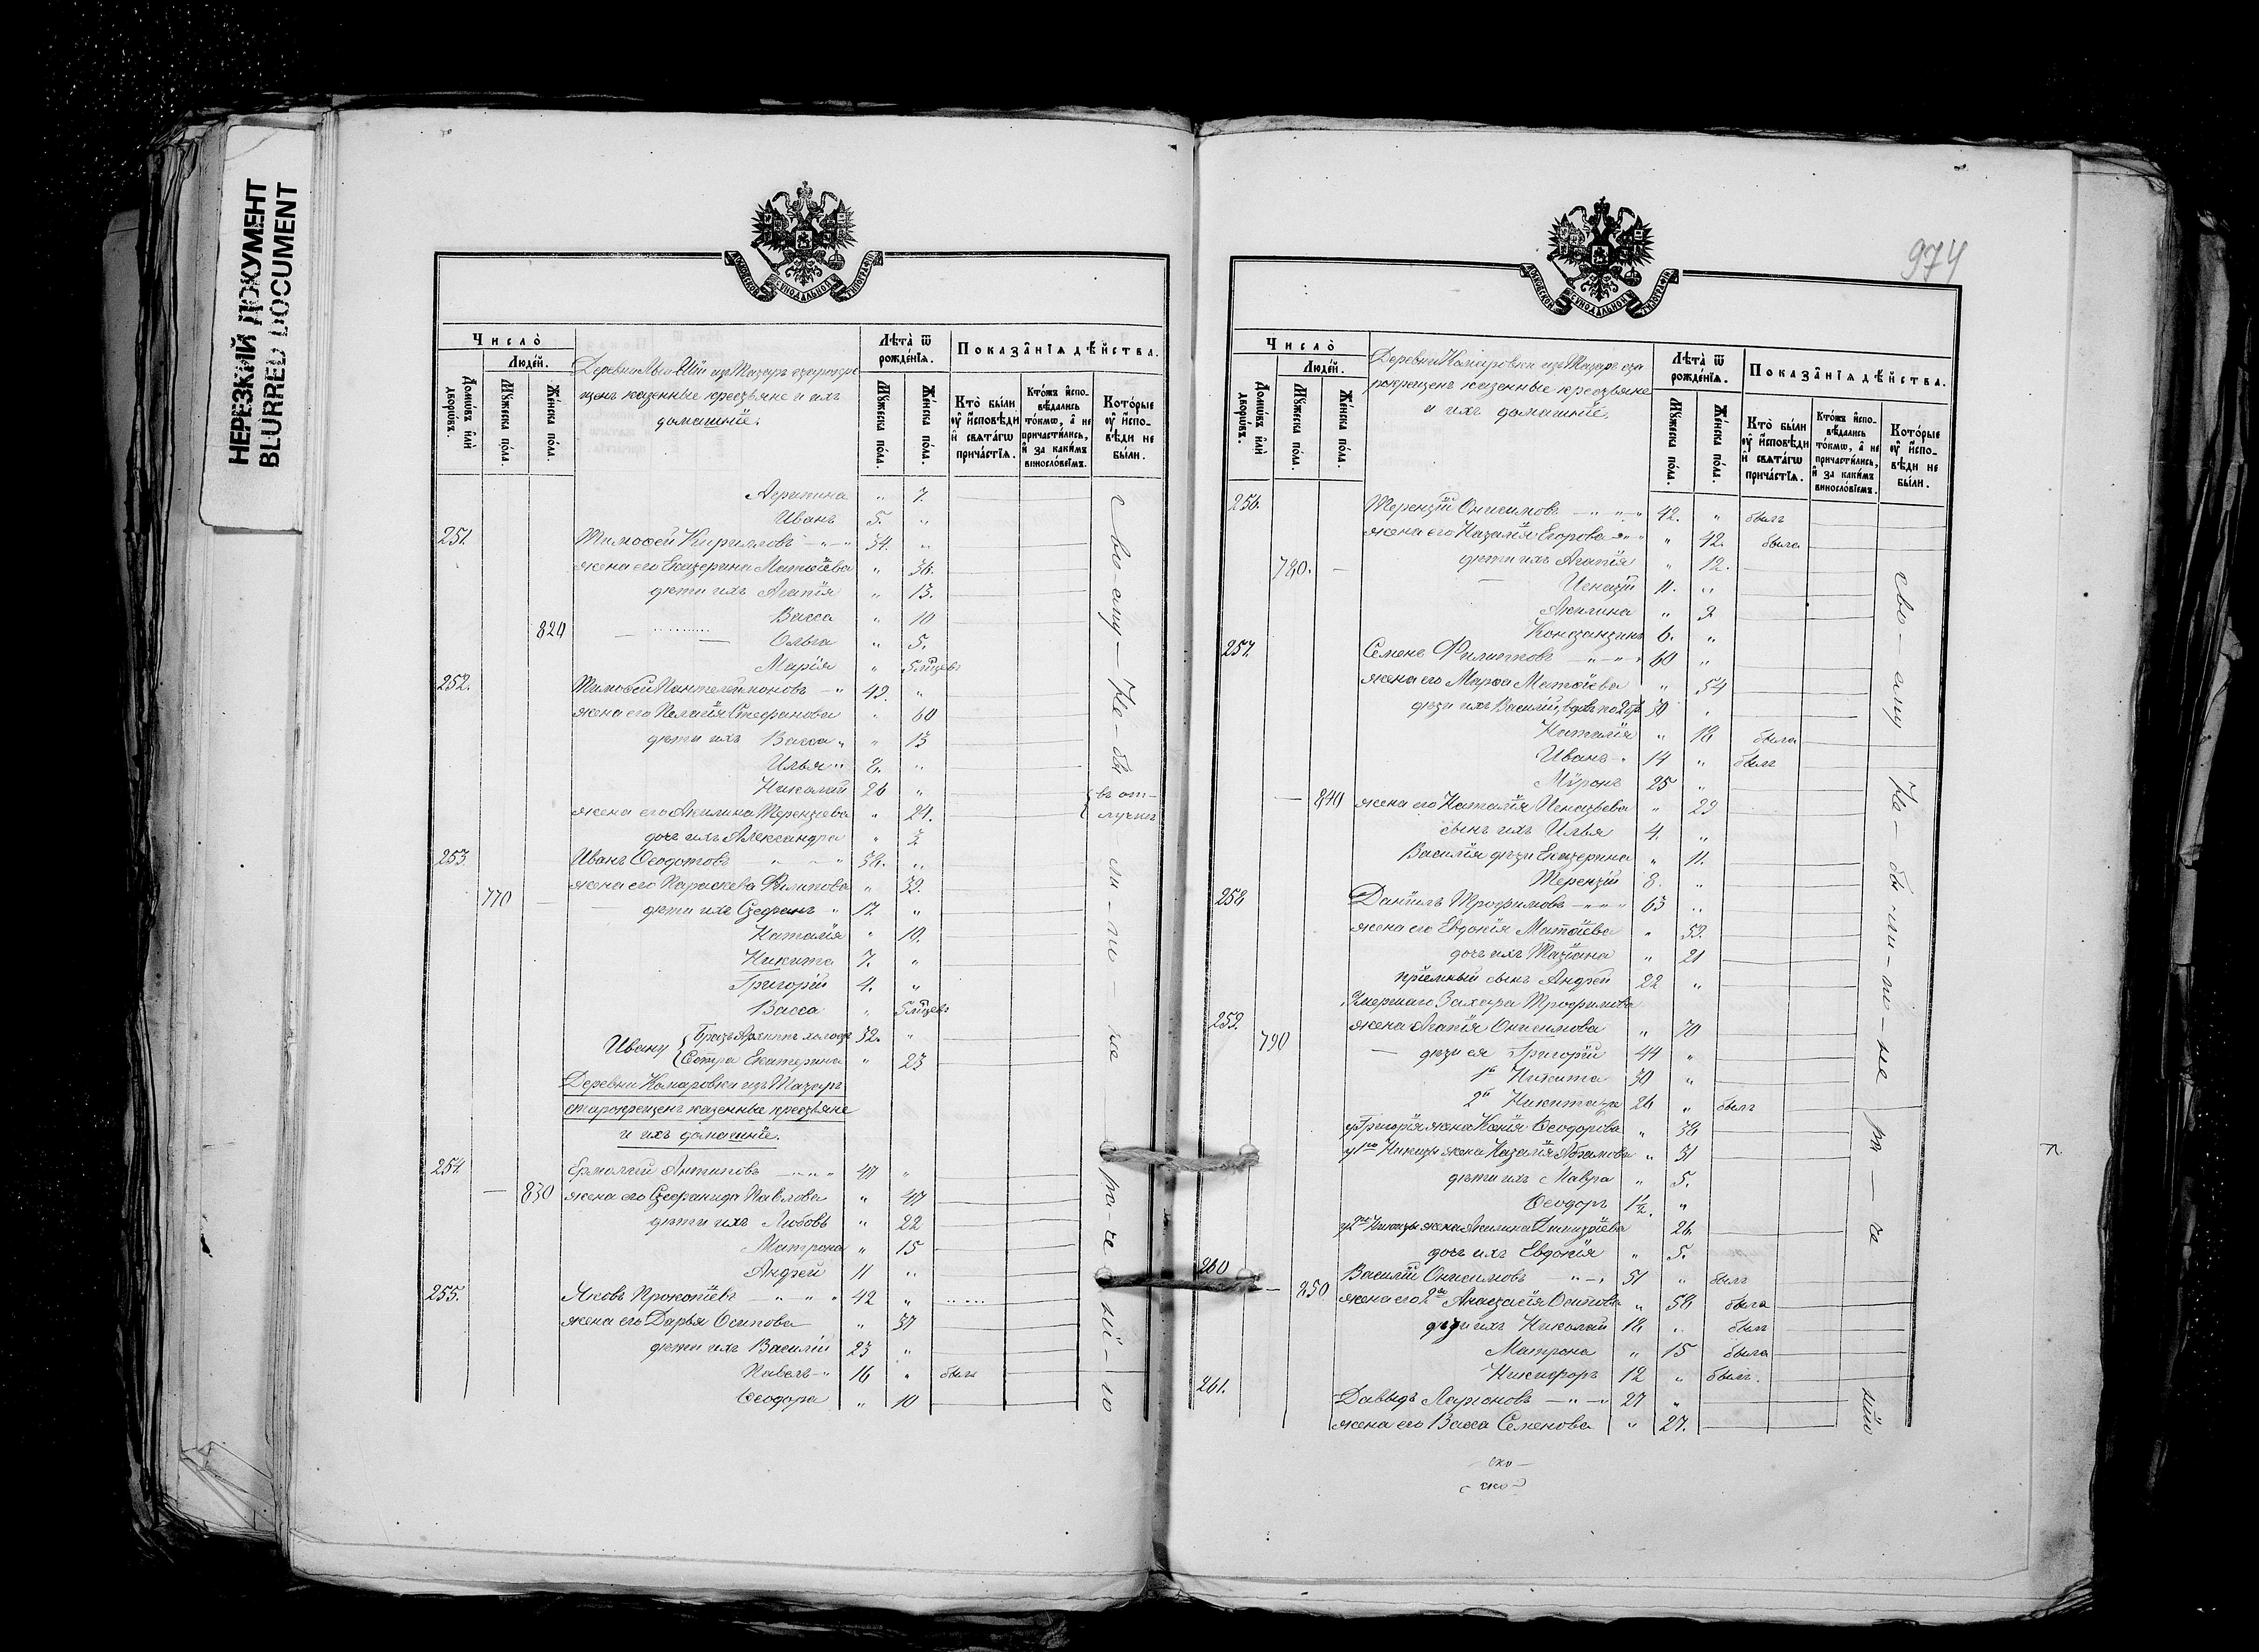 НЕРЕЗКИЙ ДОКУМЕНТ
BLURRED DOCUMENT
МОСКОВСКОЙ СѴНОДАЛЬНОЙ ТИПОГРАФІИ
Число̀
Домѡ́въ и҆лѝ дворѡ́въ.
Люде́й.
Мꙋ́жеска по́ла.
Же́нска по́ла.
Деревни изъ Татаръ старокре
щенъ казенные крестьяне и ихъ
домашніе.
Лѣта̀ ѿ рожде́нїѧ.
Мꙋ́жеска по́ла.
Же́нска по́ла.
Показа̑нїѧ дѣ́йства.
Кто̀ бы́ли ᲂу҆ и҆́сповѣди и҆ свѧта́гѡ прича́стїѧ.
Кто́жъ и҆споведались то́кмѡ, а҆ не причасти́лись, и҆ за каки́мъ винослові́емъ.
Кото́рые ᲂу҆ и҆́сповѣди не бы́ли.
Агрипина " 7.
Иванъ 5. "
251. Тимоѳей Кириловъ - " - 34. "
жена его Екатерина Матѳіева " 36.
дѣти ихъ Агапія " 13.
Васса " 10
829 Ольга " 5.
Марія " 5 мѣсяцевъ
252. Тимоѳей Пантелеймоновъ - " 49. "
жена его Пелагія Стефанова " 60
дѣти ихъ Васса " " 13
Илья " 8. "
Николай 26 " въ от-
жена его Акилина Терентіева " 24. лучкѣ
дочь ихъ Александра " 2
253. Иванъ Ѳеодотовъ " - " 38. "
жена его Параскева Филипова " 39.
770 дѣти ихъ Стефанъ " 12 "
Наталія " 10.
Никита 7. "
Григорій 4. "
Васса " 5 мѣсяцевъ
Ивану братъ Архипъ холостъ 32. "
Сестра Екатерина " 23
Деревни Комаровки изъ Татаръ
старокрещенъ казенные крестьяне
и ихъ домашніе.
254. Ермолай Антиповъ - " " 47 "
830 жена его Стефанида Павлова " 47
дѣти ихъ Любовь " 22
Матрона " 15
Андрей 11 "
255. Яковъ Прокопіевъ - " " " 42 "
жена его Дарья Осипова " 37
дѣти ихъ Василій 23 "
Павелъ - " 16 " былъ
Ѳеодора " 10
Не - бы - ли - по - не - ра - че - ні - ю
974
МОСКОВСКОЙ СѴНОДАЛЬНОЙ ТИПОГРАФІИ
Число̀
Домѡ́въ и҆лѝ дворѡ́въ.
Люде́й.
Мꙋ́жеска по́ла.
Же́нска по́ла.
Деревни Комаровки изъ Татаръ ста
рокрещенъ казенные крестьяне
и ихъ домашніе.
Лѣта̀ ѿ рожде́нїѧ.
Мꙋ́жеска по́ла.
Же́нска по́ла.
Показа̑нїѧ дѣ́йства.
Кто̀ бы́ли ᲂу҆ и҆́сповѣди и҆ свѧта́гѡ прича́стїѧ.
Кто́жъ и҆споведались то́кмѡ, а҆ не причасти́лись, и҆ за каки́мъ винослові́емъ.
Кото́рые ᲂу҆ и҆́сповѣди не бы́ли.
256. Терентій Онисимовъ - " - " 42. " былъ
жена его Наталія Егорова - " " 42. была
780. дѣти ихъ Агапія " 12.
Игнатій 11. "
Акилина " 9
Константинъ 6. "
257. Семенъ Филиповъ - " - " 60 "
жена его Марѳа Матѳіева " 54
дѣти ихъ Василій, вдовъ по 2 бр. 30 "
Наталія " 18 была
Иванъ - " 14 " былъ
Миронъ 25 "
840 жена его Наталія Игнатьева " 23
сынъ ихъ Илья 4. "
Василія дѣти Екатерина " 11.
Терентій 8. "
258 Даніилъ Трофимовъ - " " " 63 "
жена его Евдокія Матѳіева " 53.
дочь ихъ Татіана " 21
пріемный сынъ Андрей 22 "
Умершаго Захара Трофимова
259. жена Агапія Онисимова " 70
790 дѣти ея Григорій 44 "
1й Никита 30 "
2й Никита 26 " былъ
у Григорія жена Ксенія Ѳеодорова " 38
у 1го Никиты жена Наталія Абрамова " 31
дѣти ихъ Мавра " 5.
Ѳеодоръ 1½. "
у 2го Никиты жена Акилина Димитріева 26.
дочь ихъ Евдокія " 5.
260 Василій Онисимовъ " - " 51 " былъ
850 жена его 2я Анастасія Осипова " 58 была
дѣти ихъ Николай 18 " былъ
Матрона " 15 была
Никифоръ 12 " былъ.
261. Давыдъ Ларіоновъ - " - " 27 "
жена его Васса Семенова " 27.
Не - бы - ли - по - не
ско